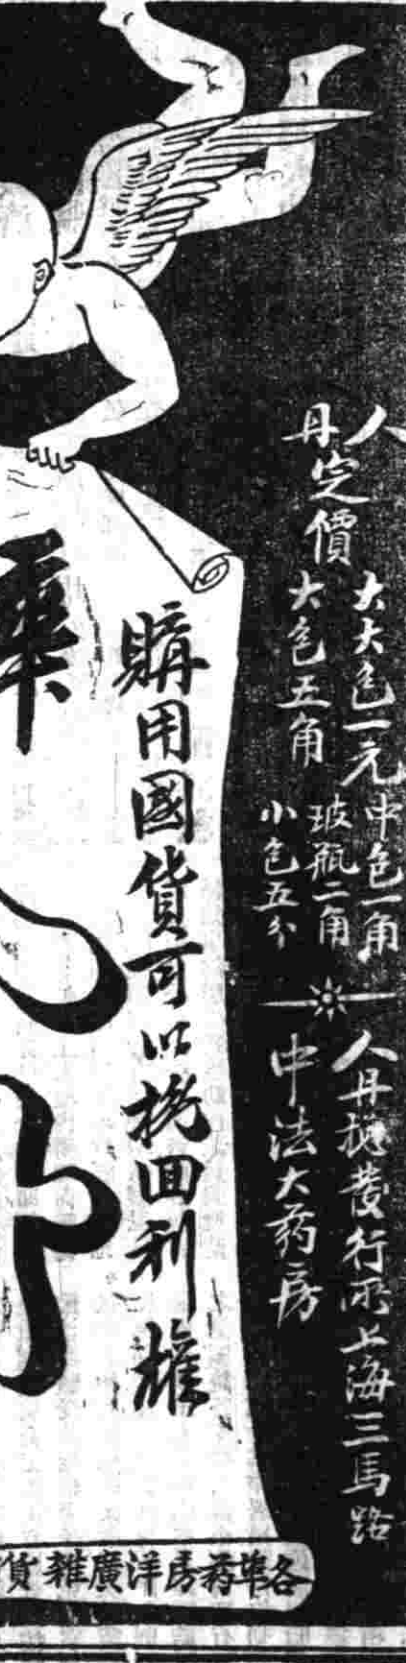 人丹定價
大大包一元
大包五角
中包一角
玻瓶二角
小包五分
人丹總發行所上海三馬路
中法大药房
購用國貨可以挽回利權
各埠药房洋廣雜貨